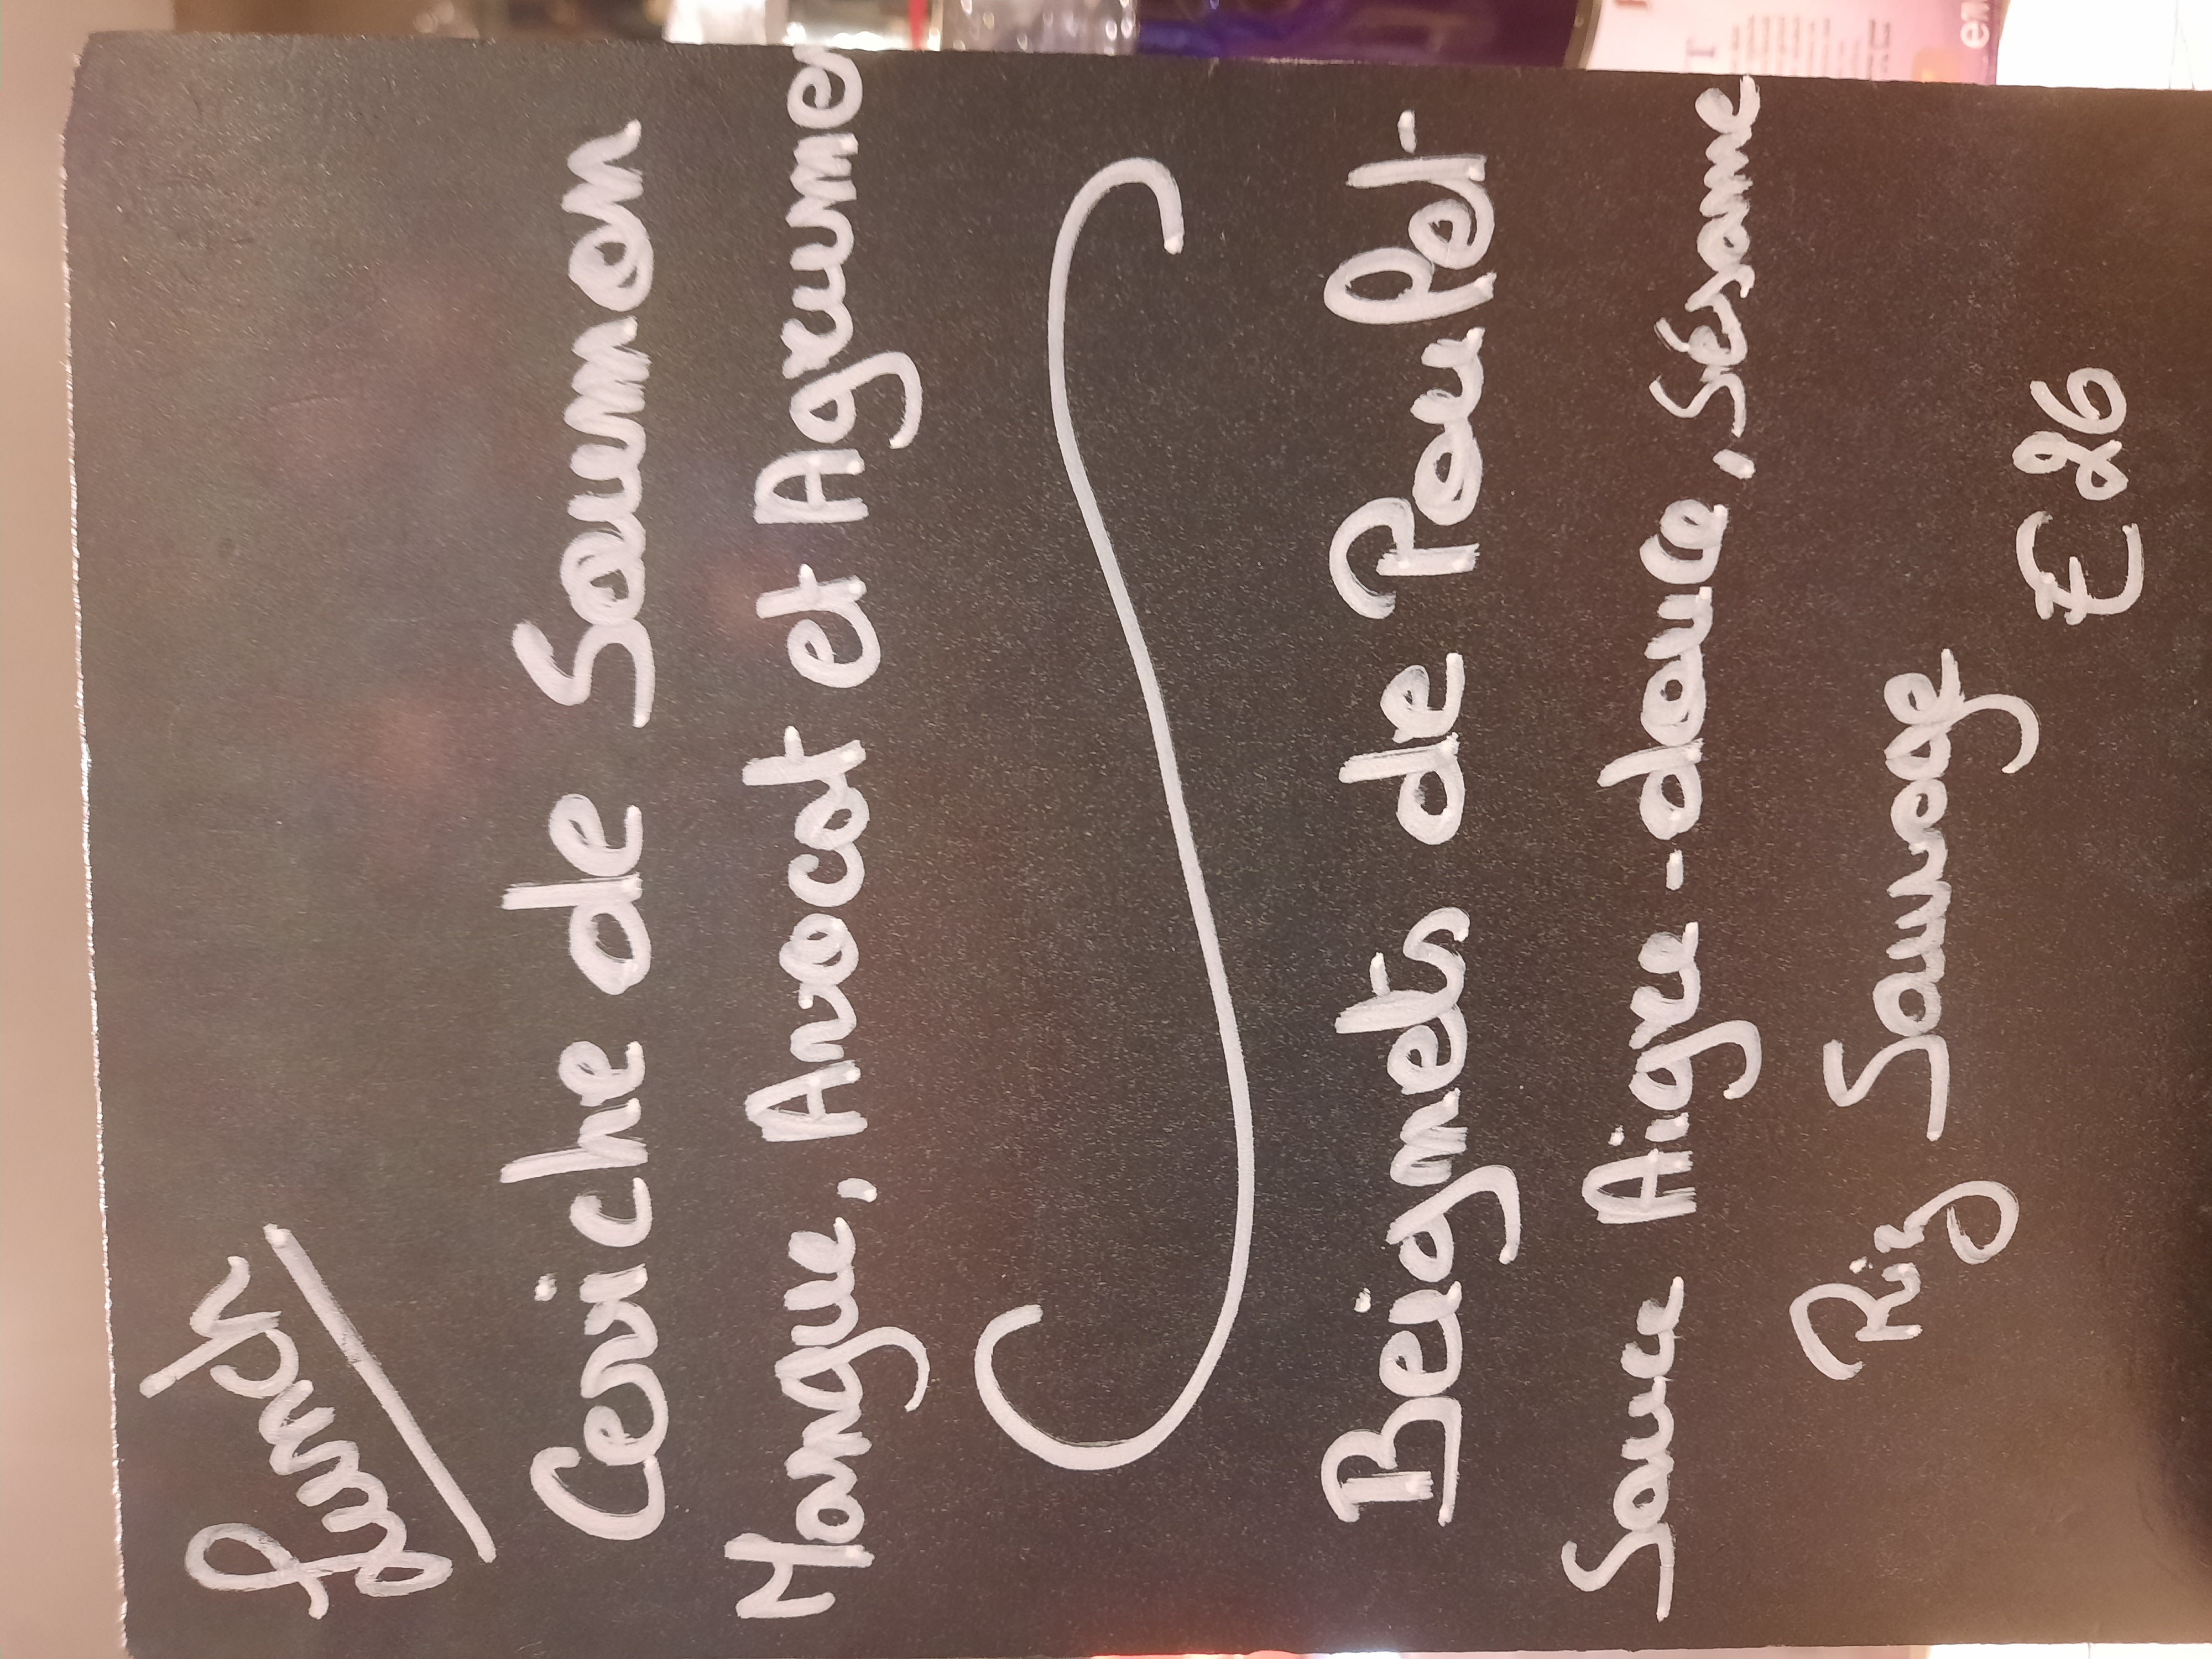 Lunch
Ceviche de Saumon
Mangue, Avocat et Agrume
Beignets de Poulet-
Sauce Aigre-douce, Sésame
Riz Sauvage
€ 26